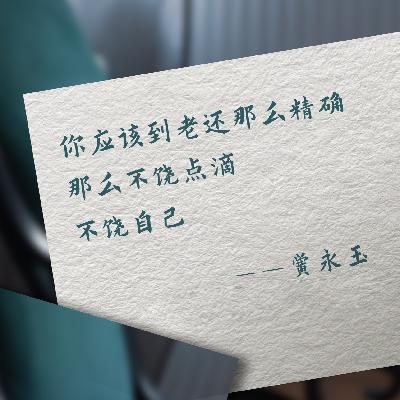 你应该到老还那么精确
那么不饶点滴
不饶自己
——黄永玉